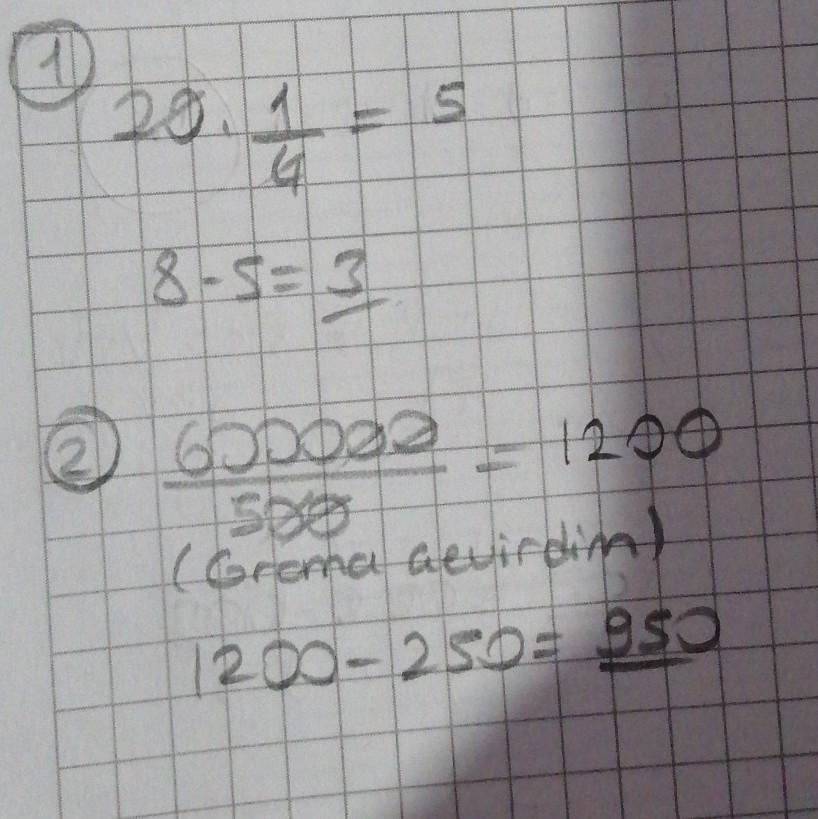 1
20 . 1/4 = 5
8 - 5 = 3
2
600000/500 = 1200
(Grama çevirdim)
1200 - 250 = 950